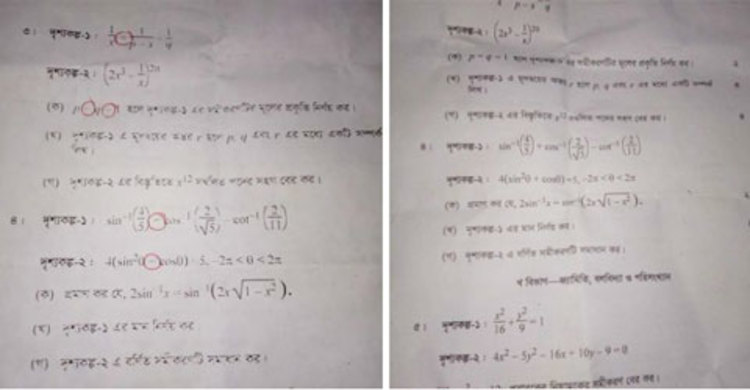 ৩। দৃশ্যকল্প-১: 1/x - 1/p-x = 1/q
দৃশ্যকল্প-২: (2x³ - 1/x)²ⁿ
(ক) হলে দৃশ্যকল্প-১ এর সমীকরণটির মূলের প্রকৃতি নির্ণয় কর।
(খ) দৃশ্যকল্প-১ এ মূলদ্বয়ের অন্তর r হলে p, q এবং r এর মধ্যে একটি সম্পর্ক
লিখ।
(গ) দৃশ্যকল্প-২ এর বিস্তৃতিতে x¹² সম্বলিত পদের সহগ বের কর।
৪। দৃশ্যকল্প-১: sin⁻¹(4/5) - cos⁻¹(2/√5) - cot⁻¹(2/11)
দৃশ্যকল্প-২: 4(sin²θ - cosθ) = 5, -2π < θ < 2π
(ক) প্রমাণ কর যে, 2sin⁻¹x = sin⁻¹(2x√1-x²).
(খ) দৃশ্যকল্প-১ এর মান নির্ণয় কর
(গ) দৃশ্যকল্প-২ এ বর্ণিত সমীকরণটি সমাধান কর।
p - x q
দৃশ্যকল্প-২: (2x³ - 1/x)²ⁿ
(ক) p = q = 1 হলে দৃশ্যকল্প-১ এর সমীকরণটির মূলের প্রকৃতি নির্ণয় কর।
(খ) দৃশ্যকল্প-১ এ মূলদ্বয়ের অন্তর r হলে p, q এবং r এর মধ্যে একটি সম্পর্ক
লিখ।
(গ) দৃশ্যকল্প-২ এর বিস্তৃতিতে x¹² সম্বলিত পদের সহগ বের কর।
৪। দৃশ্যকল্প-১: sin⁻¹(4/5) + cos⁻¹(2/√5) - cot⁻¹(2/11)
দৃশ্যকল্প-২: 4(sin²θ + cosθ) = 5, -2π < θ < 2π
(ক) প্রমাণ কর যে, 2sin⁻¹x = sin⁻¹(2x√1-x²).
(খ) দৃশ্যকল্প-১ এর মান নির্ণয় কর।
(গ) দৃশ্যকল্প-২ এ বর্ণিত সমীকরণটি সমাধান কর।
খ বিভাগ—জ্যামিতি, বলবিদ্যা ও পরিসংখ্যান
৫। দৃশ্যকল্প-১: x²/16 + y²/9 = 1
দৃশ্যকল্প-২: 4x² - 5y² - 16x + 10y - 9 = 0
সমীকরণ বের কর।